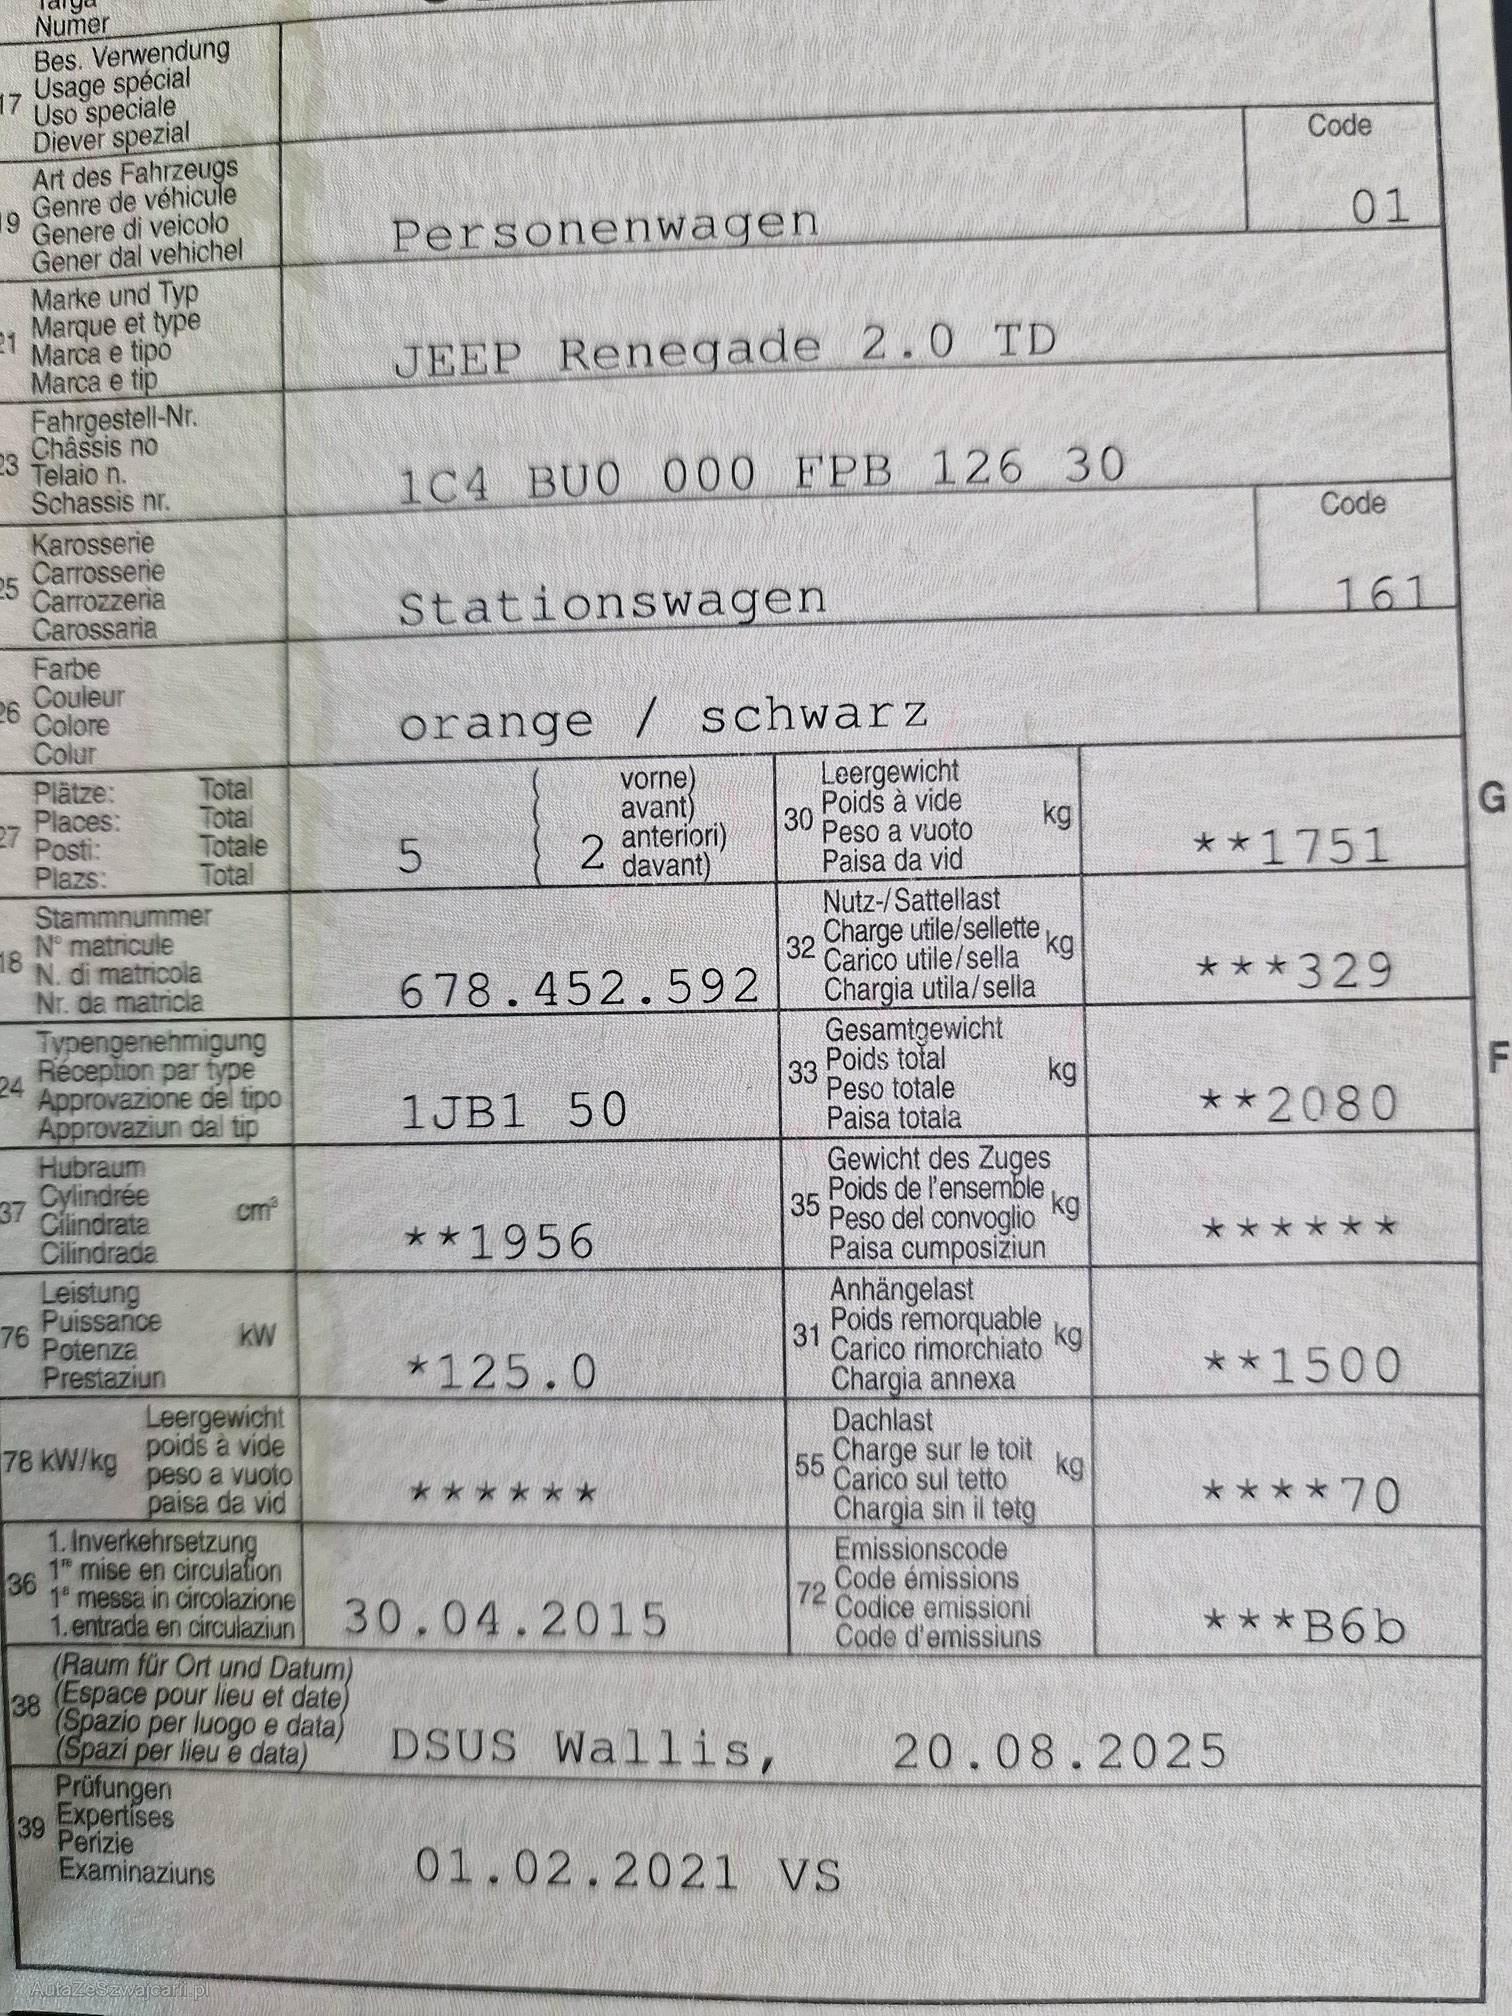 Targa
Numer
17 Bes. Verwendung
Usage spécial
Uso speciale
Diever spezial
19 Art des Fahrzeugs
Genre de véhicule
Genere di veicolo
Gener dal vehichel
Personenwagen
Code
01
21 Marke und Typ
Marque et type
Marca e tipo
Marca e tip
JEEP Renegade 2.0 TD
23 Fahrgestell-Nr.
Châssis no
Telaio n.
Schassis nr.
1C4 BU0 000 FPB 126 30
25 Karosserie
Carrosserie
Carrozzeria
Carossaria
Stationswagen
Code
161
26 Farbe
Couleur
Colore
Colur
orange / schwarz
27 Plätze: Total
Places: Total
Posti: Totale
Plazs: Total
5 ( 2 vorne)
avant)
anteriori)
davant)
30 Leergewicht
Poids à vide
Peso a vuoto
Paisa da vid
kg
**1751
G
18 Stammnummer
N° matricule
N. di matricola
Nr. da matricla
678.452.592
32 Nutz-/Sattellast
Charge utile/sellette
Carico utile/sella
Chargia utila/sella
kg
***329
24 Typengenehmigung
Réception par type
Approvazione del tipo
Approvaziun dal tip
1JB1 50
33 Gesamtgewicht
Poids total
Peso totale
Paisa totala
kg
**2080
F
37 Hubraum
Cylindrée
Cilindrata
Cilindrada
cm³
**1956
35 Gewicht des Zuges
Poids de l'ensemble
Peso del convoglio
Paisa cumposiziun
kg
******
76 Leistung
Puissance
Potenza
Prestaziun
kW
*125.0
31 Anhängelast
Poids remorquable
Carico rimorchiato
Chargia annexa
kg
**1500
78 kW/kg Leergewicht
poids à vide
peso a vuoto
paisa da vid
******
55 Dachlast
Charge sur le toit
Carico sul tetto
Chargia sin il tetg
kg
****70
36 1. Inverkehrsetzung
1re mise en circulation
1a messa in circolazione
1. entrada en circulaziun
30.04.2015
72 Emissionscode
Code émissions
Codice emissioni
Code d'emissiuns
***B6b
38 (Raum für Ort und Datum)
(Espace pour lieu et date)
(Spazio per luogo e data)
(Spazi per lieu e data)
DSUS Wallis, 20.08.2025
39 Prüfungen
Expertises
Perizie
Examinaziuns
01.02.2021 VS
AutaZeSzwajcarii.pl